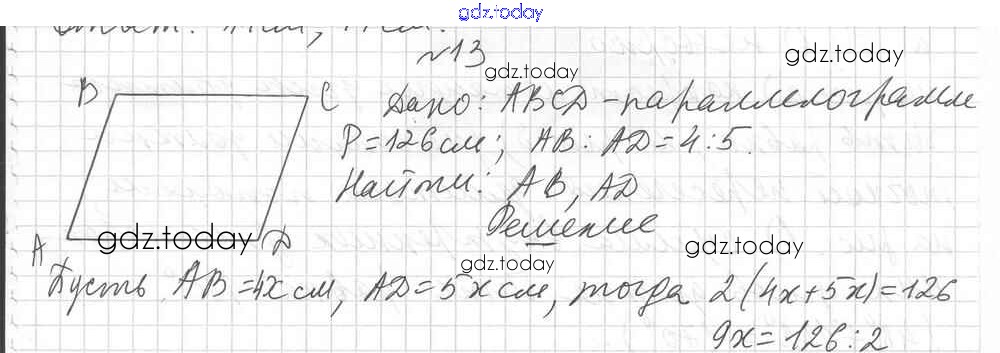 gdz.today
Ответ:
№13
gdz.today
gdz.today
B
C
Дано: ABCD - параллелограмм
P=126 см; AB:AD=4:5.
Найти: AB, AD
Решение
A
gdz.today
D
gdz.today
gdz.today
Пусть AB=4x см, AD=5x см, тогда 2(4x+5x)=126
9x=126:2